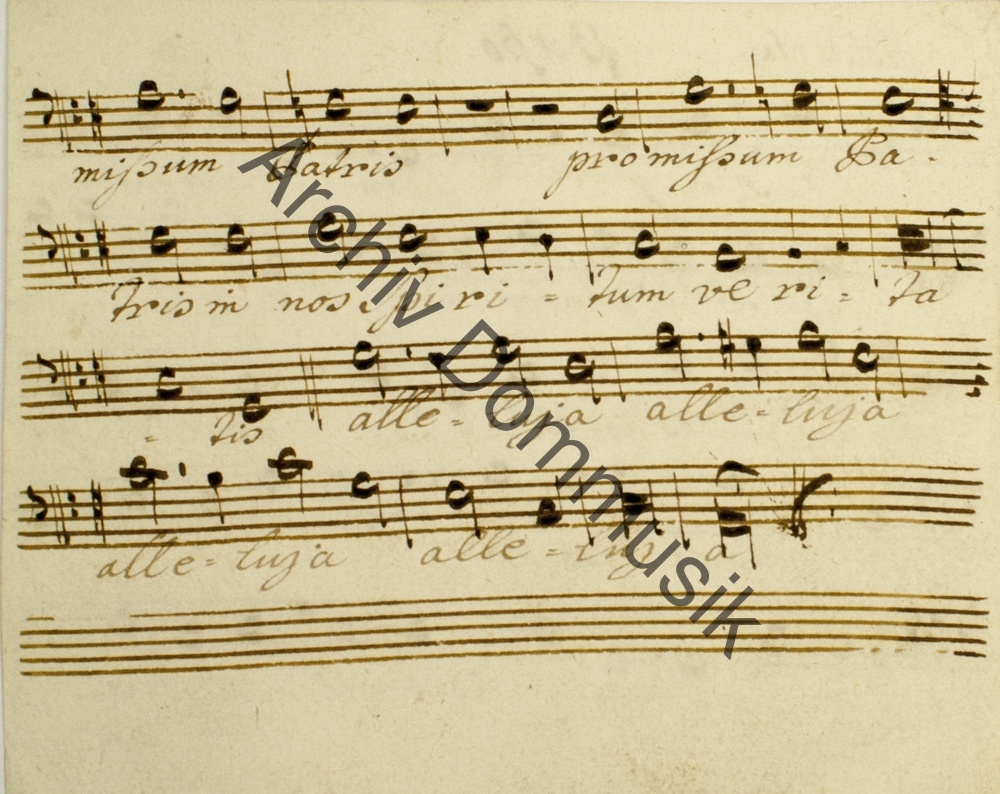 missum Patris promissum Pa-
tris in nos spiri = tum veri = ta
= tis alle = luja alle = luja
alle = luja alle = luja
Archiv Dommusik